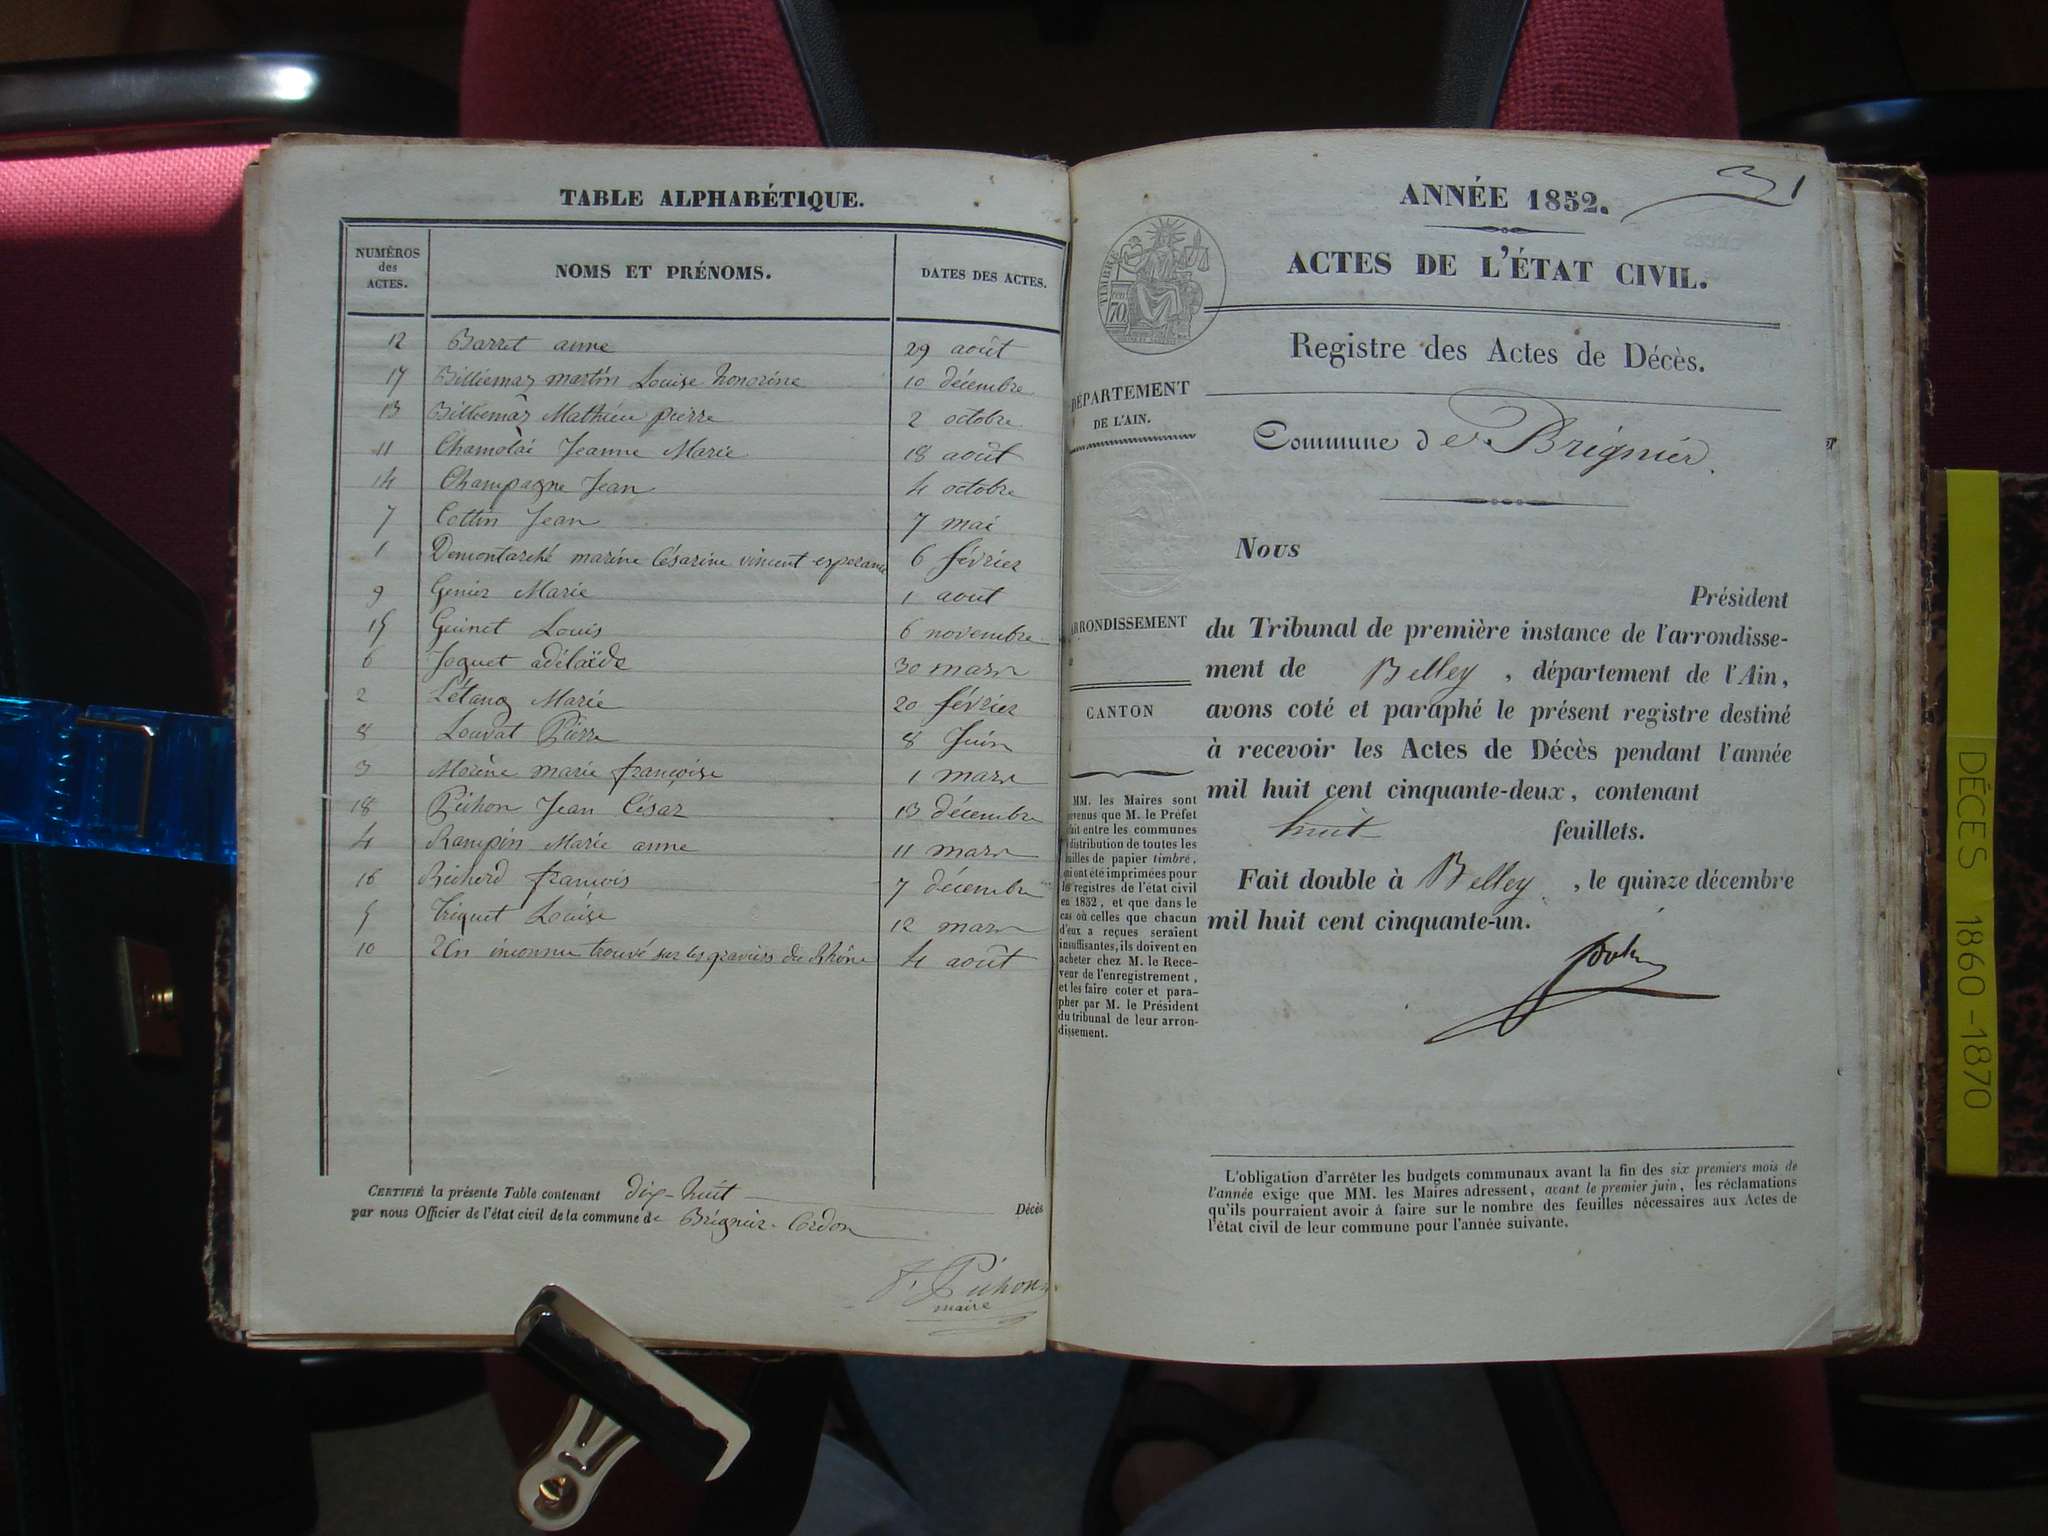 TABLE ALPHABÉTIQUE.
NUMÉROS des ACTES. NOMS ET PRÉNOMS. DATES DES ACTES.
12 Barret anne 29 août
17 Billiemaz martin Louise honorine 10 décembre
13 Billiemaz Mathieu pierre 2 octobre
11 Chamolai Jeanne Marie 18 août
14 Champagne Jean 4 octobre
7 Cottin Jean 7 mai
1 Demontarché marine Césarine vincent esperance 6 février
9 Genier Marie 1 aout
15 Guinet Louis 6 novembre
6 Joguet adélaïde 30 mars
2 Létang Marie 20 février
8 Louvat Pierre 8 Juin
3 Morène marie françoise 1 mars
18 Pichon Jean César 13 décembre
4 Rampin Marie anne 11 mars
16 Richerd francois 7 décembre
5 Triquet Louise 12 mars
10 Un inconnu trouvé sur les graviers du Rhône 4 août
CERTIFIÉ la présente Table contenant dix-huit Décès
par nous Officier de l'état civil de la commune de Brégnier-Cordon
J. Pichon
maire
31
ANNÉE 1852.
ACTES DE L'ÉTAT CIVIL.
TIMBRE
70
Registre des Actes de Décès.
DÉPARTEMENT
DE L'AIN.
Commune de Brégnier.
Nous
Président
ARRONDISSEMENT
du Tribunal de première instance de l'arrondisse-
ment de Belley, département de l'Ain,
CANTON
avons coté et paraphé le présent registre destiné
à recevoir les Actes de Décès pendant l'année
mil huit cent cinquante-deux, contenant
huit feuillets.
Fait double à Belley, le quinze décembre
mil huit cent cinquante-un.
MM. les Maires sont
venus que M. le Préfet
fait entre les communes
distribution de toutes les
uilles de papier timbré,
qui ont été imprimées pour
les registres de l'état civil
en 1852, et que dans le
cas où celles que chacun
d'eux a reçues seraient
insuffisantes, ils doivent en
acheter chez M. le Rece-
veur de l'enregistrement,
et les faire coter et para-
pher par M. le Président
du tribunal de leur arron-
dissement.
L'obligation d'arrêter les budgets communaux avant la fin des six premiers mois de
l'année exige que MM. les Maires adressent, avant le premier juin, les réclamations
qu'ils pourraient avoir à faire sur le nombre des feuilles nécessaires aux Actes de
l'état civil de leur commune pour l'année suivante.
DÉCES 1860-1870